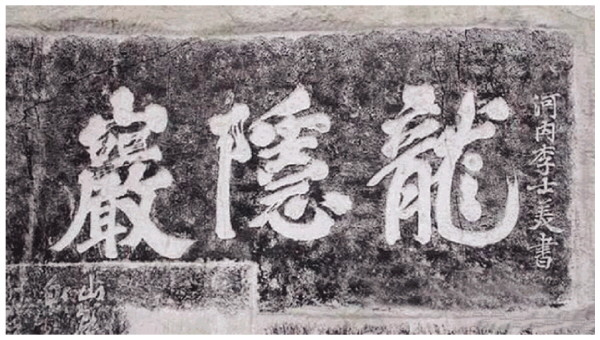 河内李士美書
龍隱巖
山